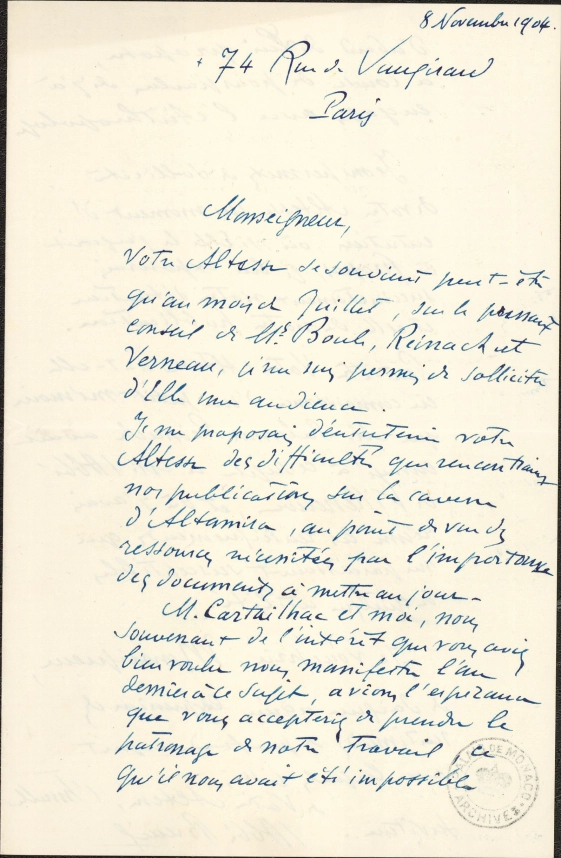 8 Novembre 1904.
74 Rue de Vaugirard
Paris
Monseigneur,
Votre Altesse se souvient peut-être
qu'au mois de Juillet, sur le pressant
conseil de Mrs Boule, Reinach et
Verneau, je me suis permis de solliciter
d'Elle une audience.
Je me proposais d'entretenir votre
Altesse des difficultés que rencontraient
nos publications sur la caverne
d'Altamira, au point de vue des
ressources nécessitées par l'importance
des documents à mettre au jour.
M. Cartailhac et moi, nous
souvenant de l'intérêt que vous aviez
bien voulu nous manifester l'an
dernier à ce sujet, avions l'espérance
que vous accepteriez de prendre le
patronage de notre travail ce
qu'il nous avait été impossible
PALAIS DE MONACO
ARCHIVES